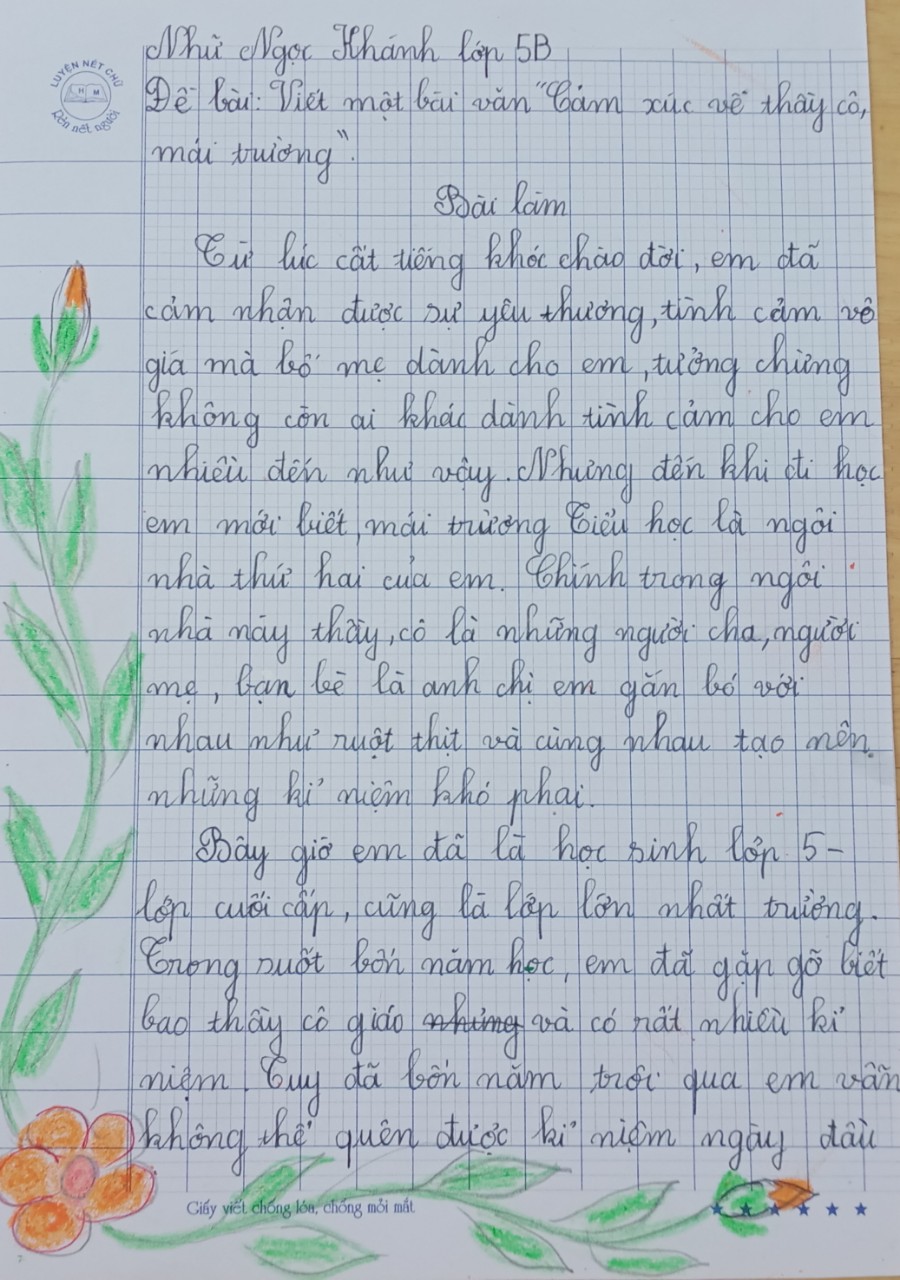 Như Ngọc Khánh lớp 5B
LUYỆN NÉT CHỮ
HM
Rèn nết người
Đề bài: Viết một bài văn "Cảm xúc về thầy cô,
mái trường".
Bài làm
Từ lúc cất tiếng khóc chào đời, em đã
cảm nhận được sự yêu thương, tình cảm vô
giá mà bố mẹ dành cho em, tưởng chừng
không còn ai khác dành tình cảm cho em
nhiều đến như vậy. Nhưng đến khi đi học
em mới biết, mái trường Tiểu học là ngôi
nhà thứ hai của em. Chính trong ngôi
nhà này thầy, cô là những người cha, người
mẹ, bạn bè là anh chị em gắn bó với
nhau như ruột thịt và cùng nhau tạo nên
những kỉ niệm khó phai.
Bây giờ em đã là học sinh lớp 5-
lớp cuối cấp, cũng là lớp lớn nhất trường.
Trong suốt bốn năm học, em đã gặp gỡ biết
bao thầy cô giáo những và có rất nhiều kỉ
niệm. Tuy đã bốn năm trôi qua em vẫn
không thể quên được kỉ niệm ngày đầu
Giấy viết chống lóa, chống mỏi mắt